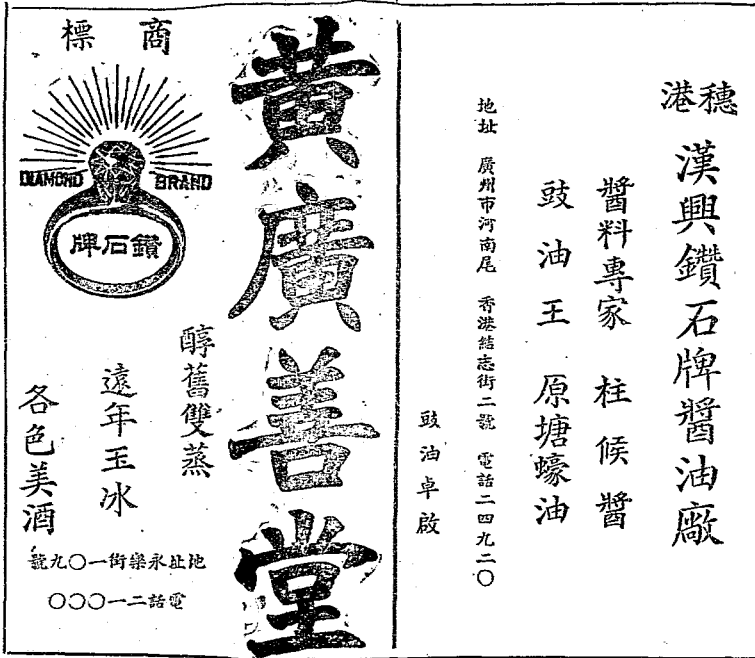 穗港
漢興鑽石牌醬油廠
醬料專家 柱候醬
豉油王 原塘蠔油
地址 廣州市河南尾 香港結志街二號 電話二四九二〇
豉油卓啟
黃廣善堂
商標
DIAMOND BRAND
鑽石牌
醇舊雙蒸
遠年玉冰
各色美酒
地址永樂街一〇九號
電話二一〇〇〇